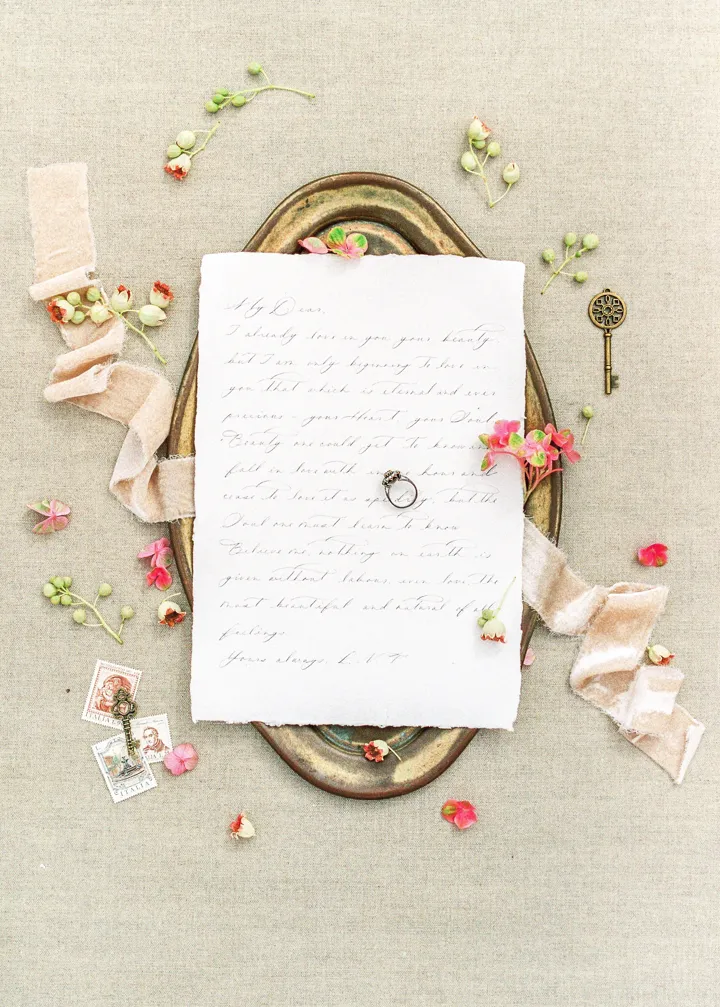 My Dear,
I already love in you your beauty,
but I am only beginning to love in
you that which is eternal and ever
precious - your Heart, your Soul.
Beauty one could get to know and
fall in love with in one hour and
cease to love it as speedily, but the
Soul one must learn to know
Believe me, nothing on earth is
given without labour, even love, the
most beautiful and natural of all
feelings
Yours always, L.N.T.
ITALIA
ITALIA